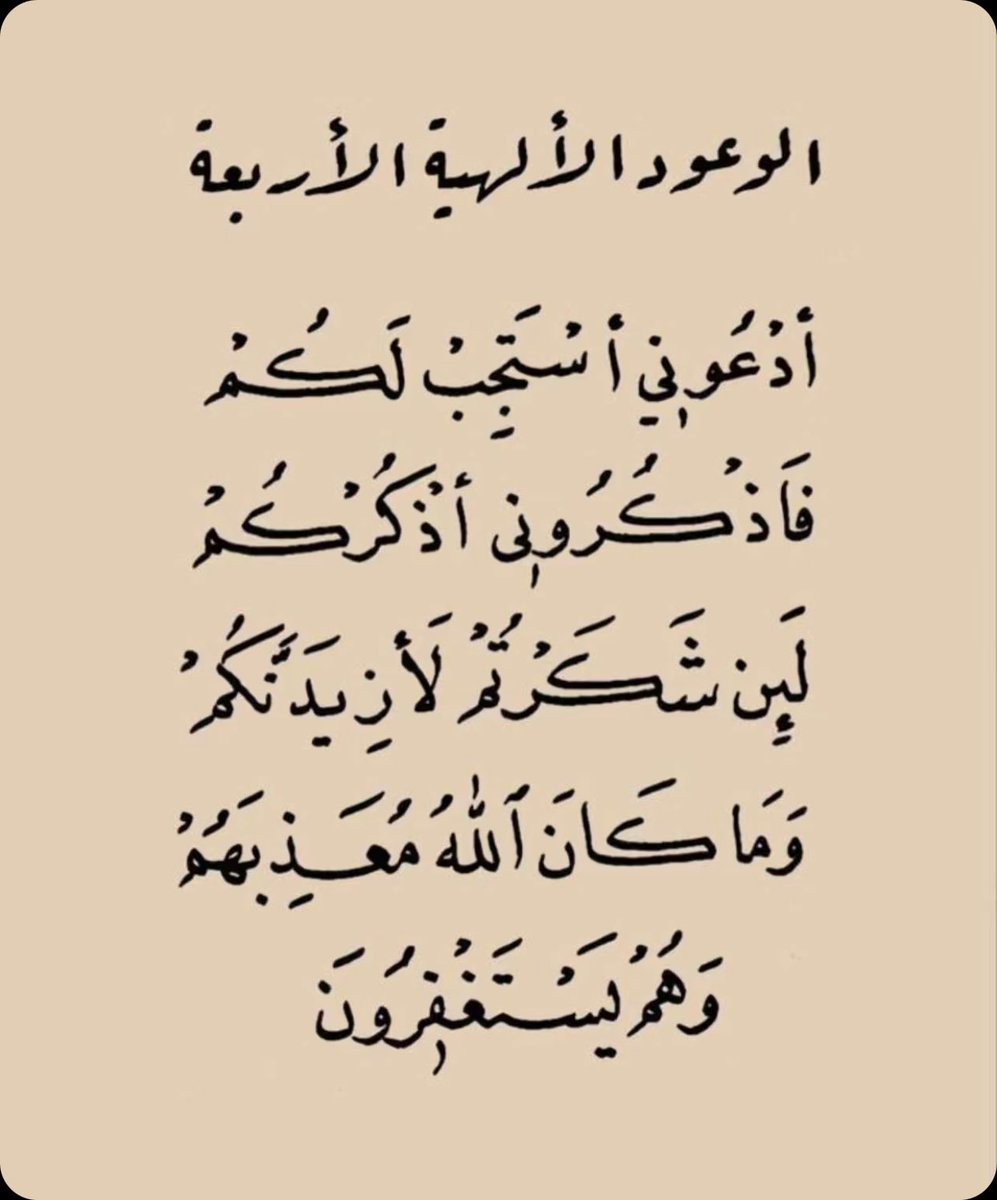 الوعود الألهية الأربعة
أدْعُونِي أسْتَجِبْ لَكُمْ
فَاذْكُرُونِى أذْكُرْكُمْ
لَئِن شَكَرْتُمْ لَأَزِيدَنَّكُمْ
وَمَا كَانَ ٱللَّهُ مُعَذِبَهُمْ
وَهُمْ يَسْتَغْفِرُونَ